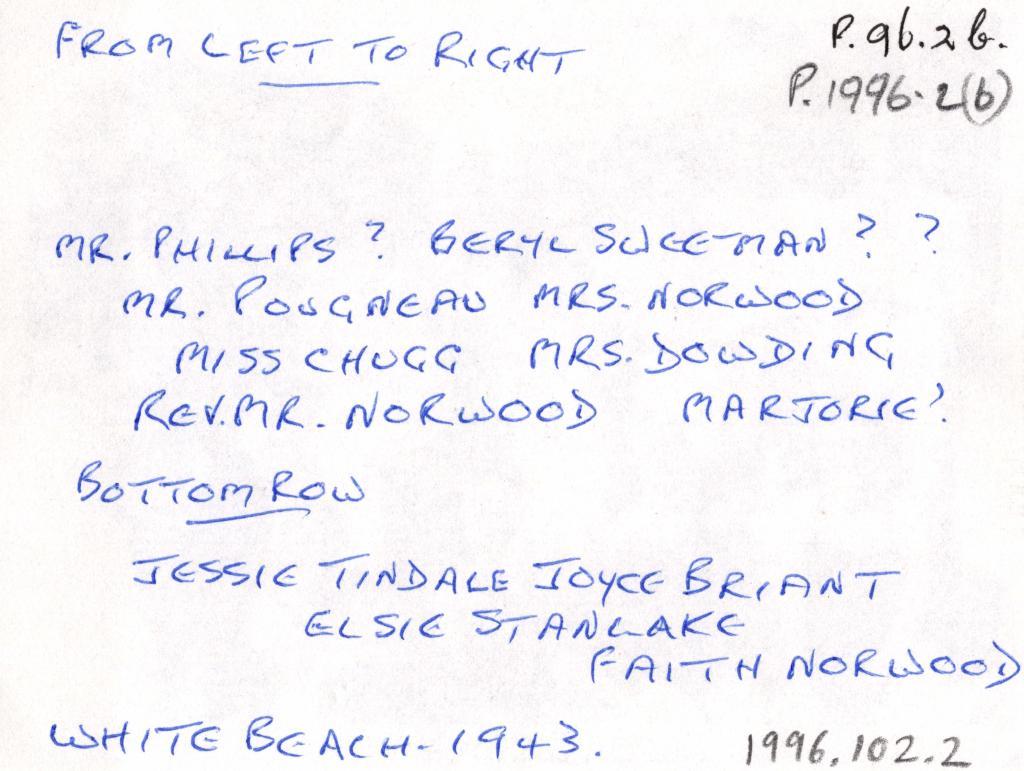 FROM LEFT TO RIGHT
P.96.2b.
P.1996.2(b)
MR. PHILLIPS ? BERYL SWEETMAN ? ?
MR. POUGNEAU MRS. NORWOOD
MISS CHUGG MRS. DOWDING
REV. MR. NORWOOD MARJORIE ?
BOTTOM ROW
JESSIE TINDALE JOYCE BRIANT
ELSIE STANLAKE
FAITH NORWOOD
WHITE BEACH - 1943.
1996.102.2